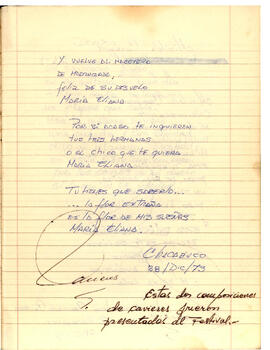 Y VUELVE AL MAGISTERIO
DE MADRUGADA,
FELIZ DE SU DESVELO
MARÍA ELIANA
POR SI ACASO TE INQUIEREN
TUS MIS HERMANAS
O EL CHICO QUE TE QUIERA
MARÍA ELIANA
TU TIENES QUE SABERLO...
... LA FLOR EXTRAÑA
ES LA FLOR DE MIS SUEÑOS
MARÍA ELIANA.
CHACABUCO
28/DIC/73
Estas dos composiciones
de cavieres fueron
presentadas al Festival.-